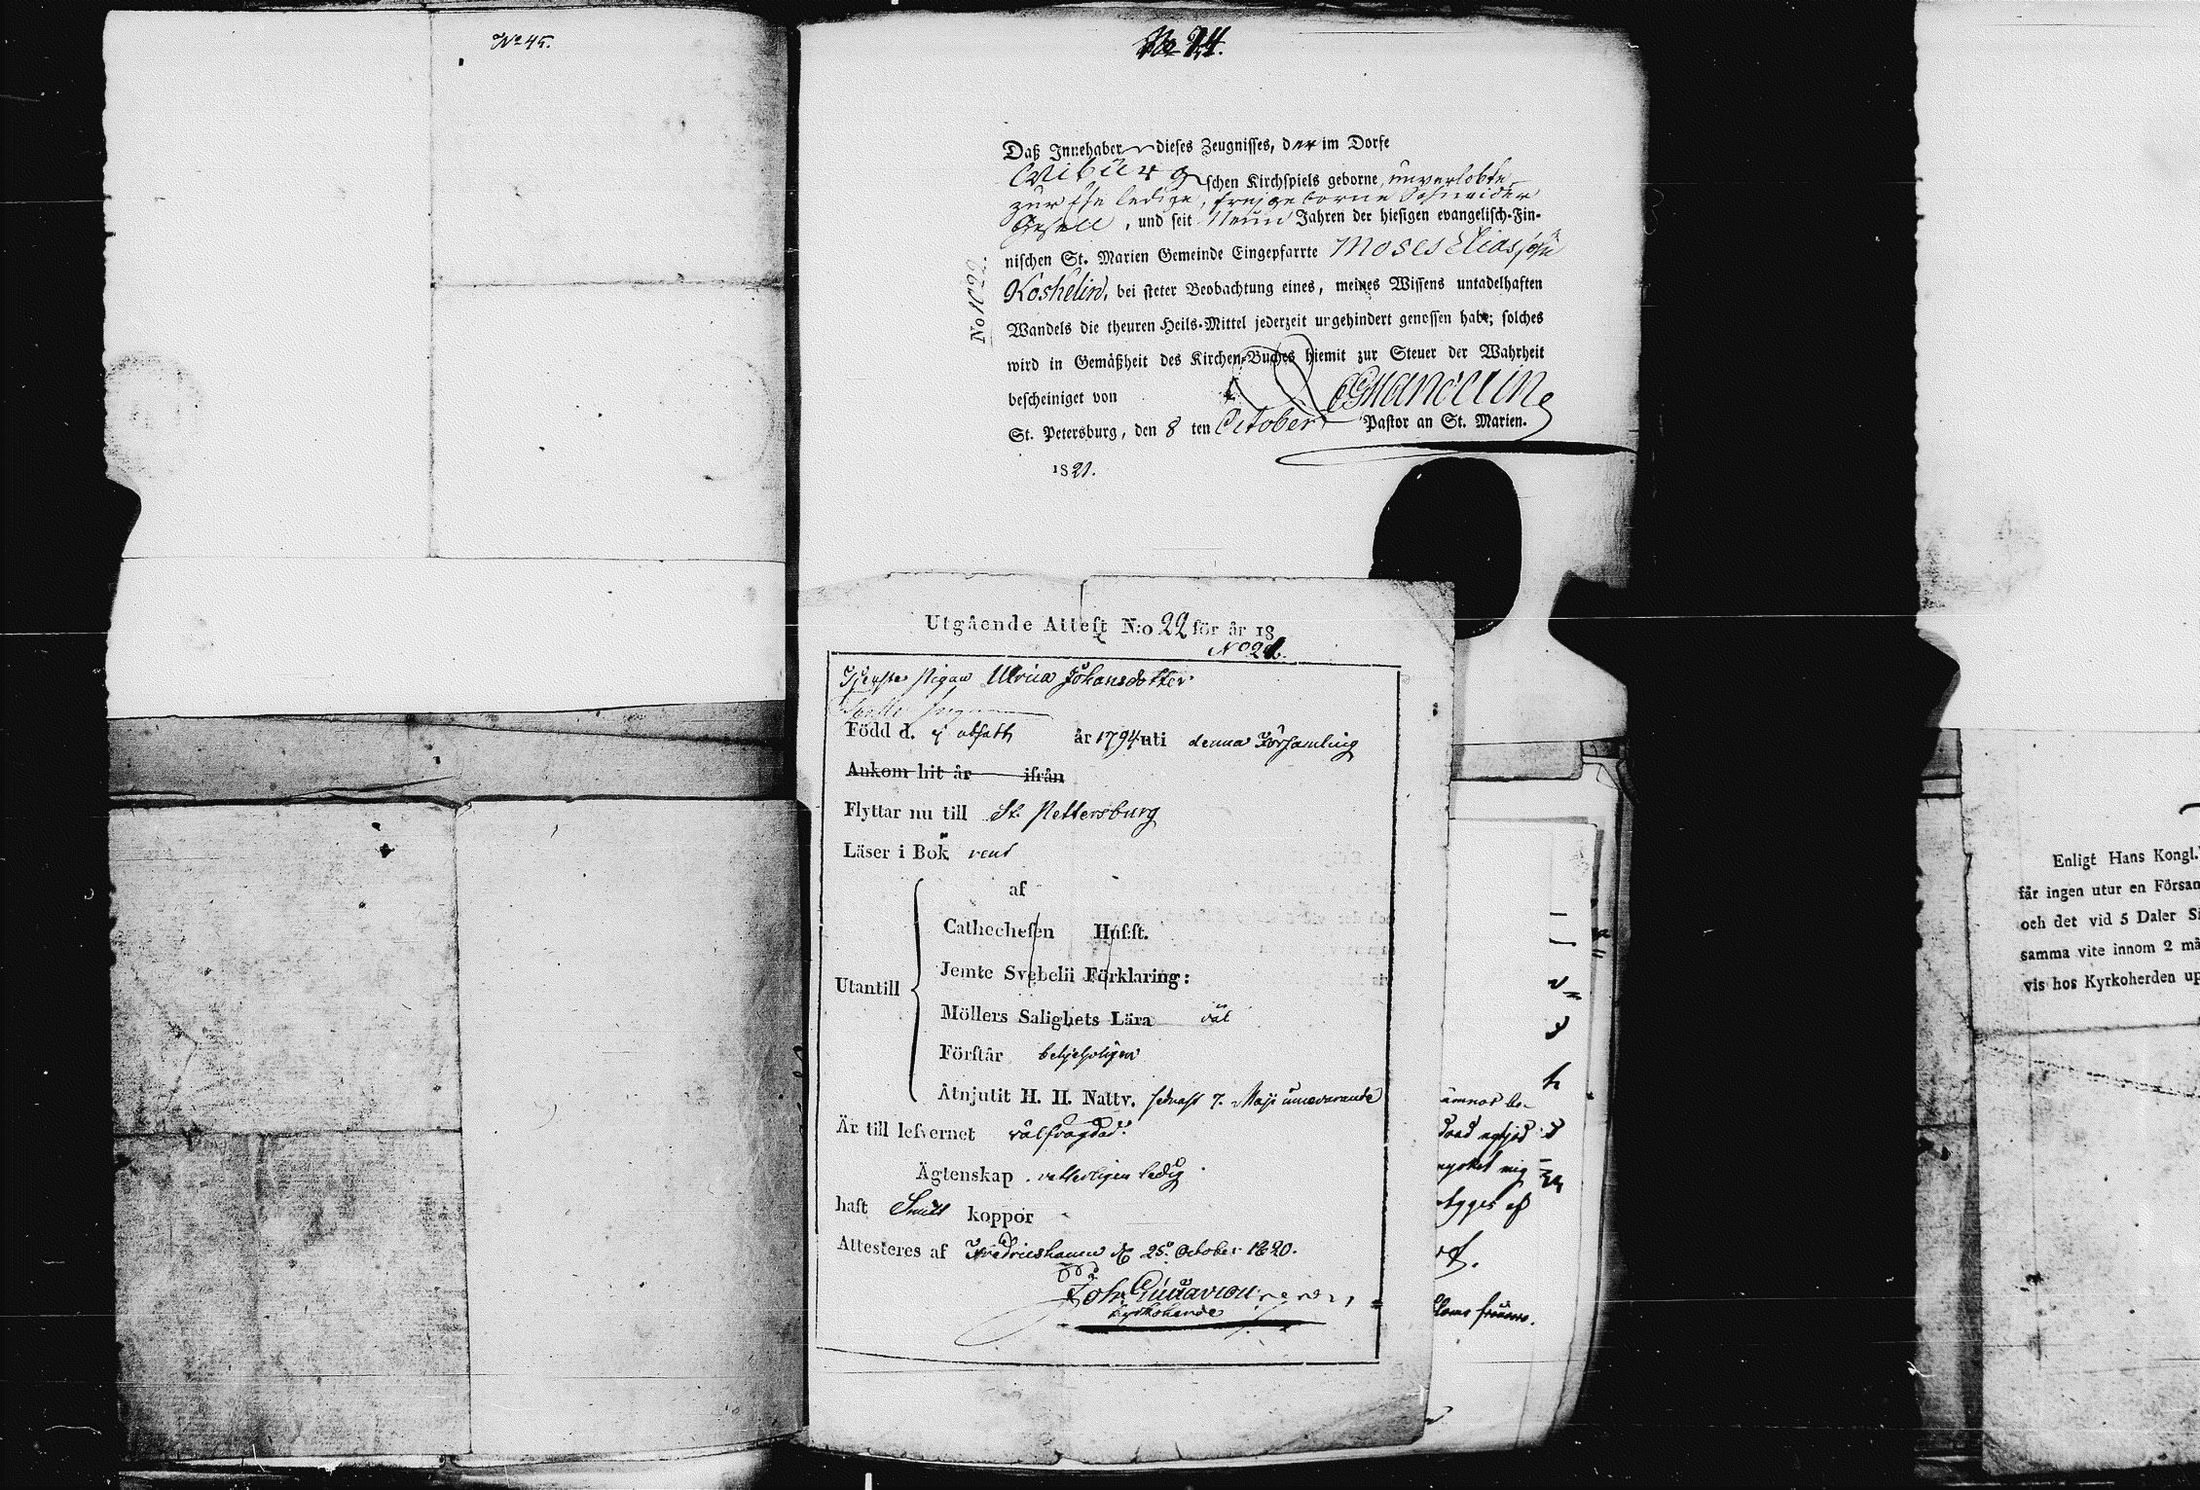 No 45.
No 24.
Daß Innehaber dieses Zeugnisses, der im Dorfe
Wiburg schen Kirchspiels geborne, unverlobte
zur Ehe ledige, freygeborne Schneider
Gesell, und seit Neun Jahren der hiesigen evangelisch-Fin-
nischen St. Marien Gemeinde Eingepfarrte Moses Eliassohn
Koskelin, bei steter Beobachtung eines, meines Wissens untadelhaften
Wandels die theuren Heils-Mittel jederzeit ungehindert genossen habe; solches
wird in Gemäßheit des Kirchen-Buches hiemit zur Steuer der Wahrheit
bescheiniget von
St. Petersburg, den 8 ten October Pastor an St. Marien.
1821.
No 1022.
Utgående Attest N:o 22 för år 18
No 22.
Pigan Ulrica Johansdotter
Född d. ej utsatt år 1794 uti denna Församling
Ankom hit år ifrån
Flyttar nu till St. Pettersburg
Läser i Bok rent
af
Cathechesen Husst.
Jemte Svebelii Förklaring:
Utantill
Möllers Salighets Lära väl
Förstår behjelpligen
Åtnjutit H. H. Nattv. sednast 7. Maji innevarande
Är till lefvernet välfrägdad.
Ägtenskap. vetterligen ledig
haft Smitt koppor
Attesteres af Fredricshamn d. 25. October 1820.
Joh. Gustav
Kyrkoherde
Enligt Hans Kongl.
får ingen utur en Försam
och det vid 5 Daler Si
samma vite innom 2 må
vis hos Kyrkoherden up